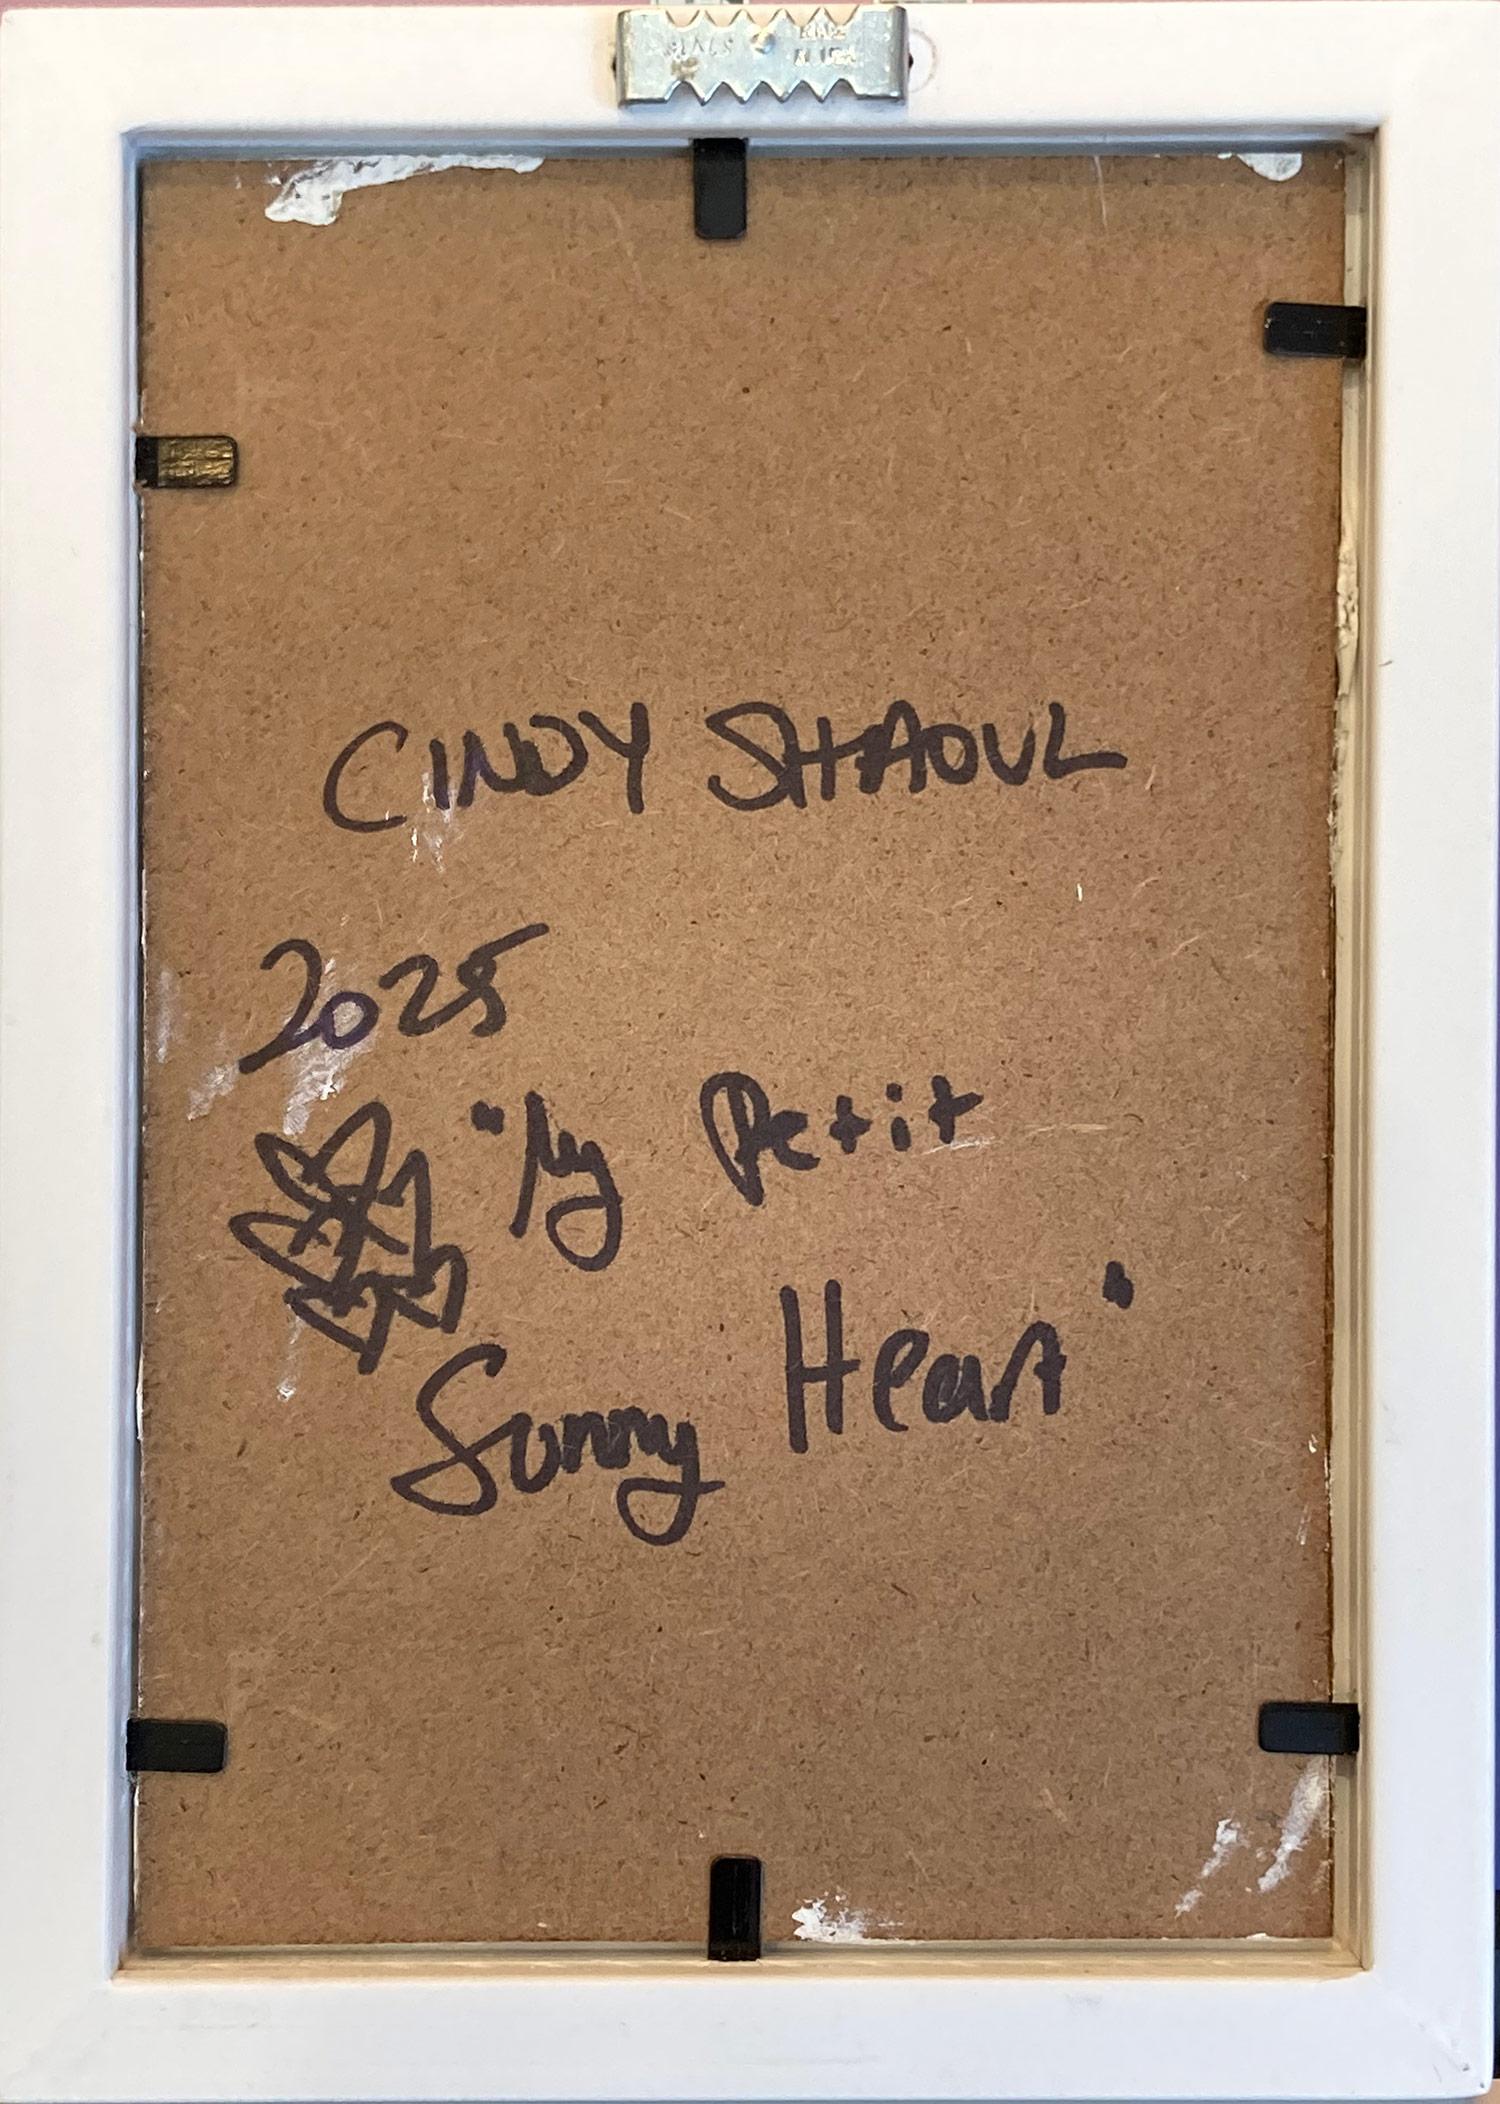 CINDY SHAOUL
2025
"My Petit
Sunny Heart"